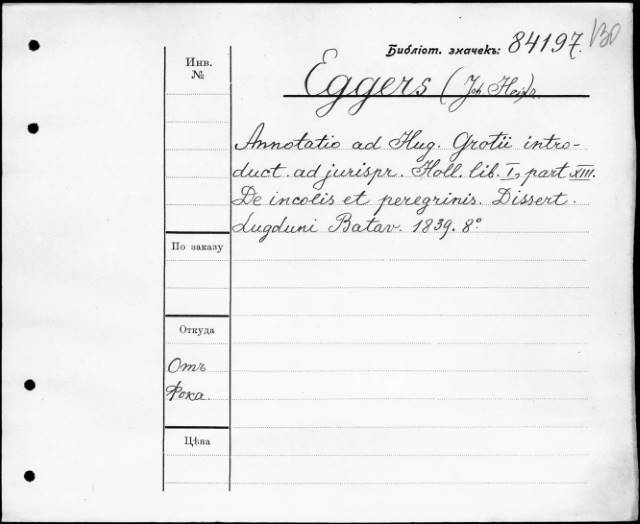 Библіот. значекъ: 84197. BD
Инв.
№
Eggers (Joh Heinr.
Annotatio ad Hug. Grotii intro-
duct. ad jurispr. Holl. lib. I, part XIII.
De incolis et peregrinis. Dissert.
Lugduni Batav. 1839. 8°
По заказу
Откуда
Отъ
Фока.
Цѣна